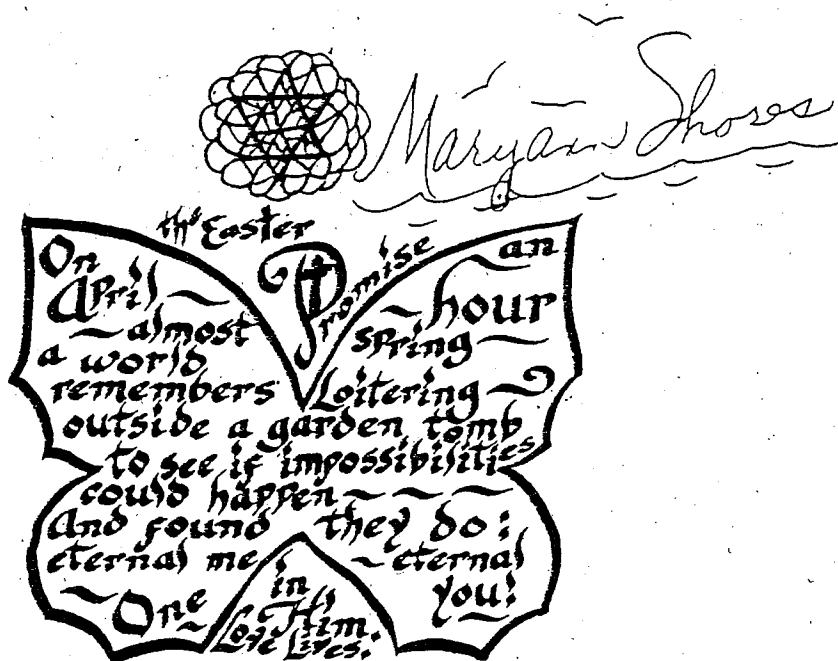 Maryann Shores
the Easter
Promise
On an
April ~ ~ hour
~ almost spring ~
a world
remembers Loitering ~
outside a garden tomb
to see if impossibilities
could happen ~ ~ ~ ~
And found they do:
eternal me ~ eternal
you!
~ One ~ in
Him.
Love Lives.